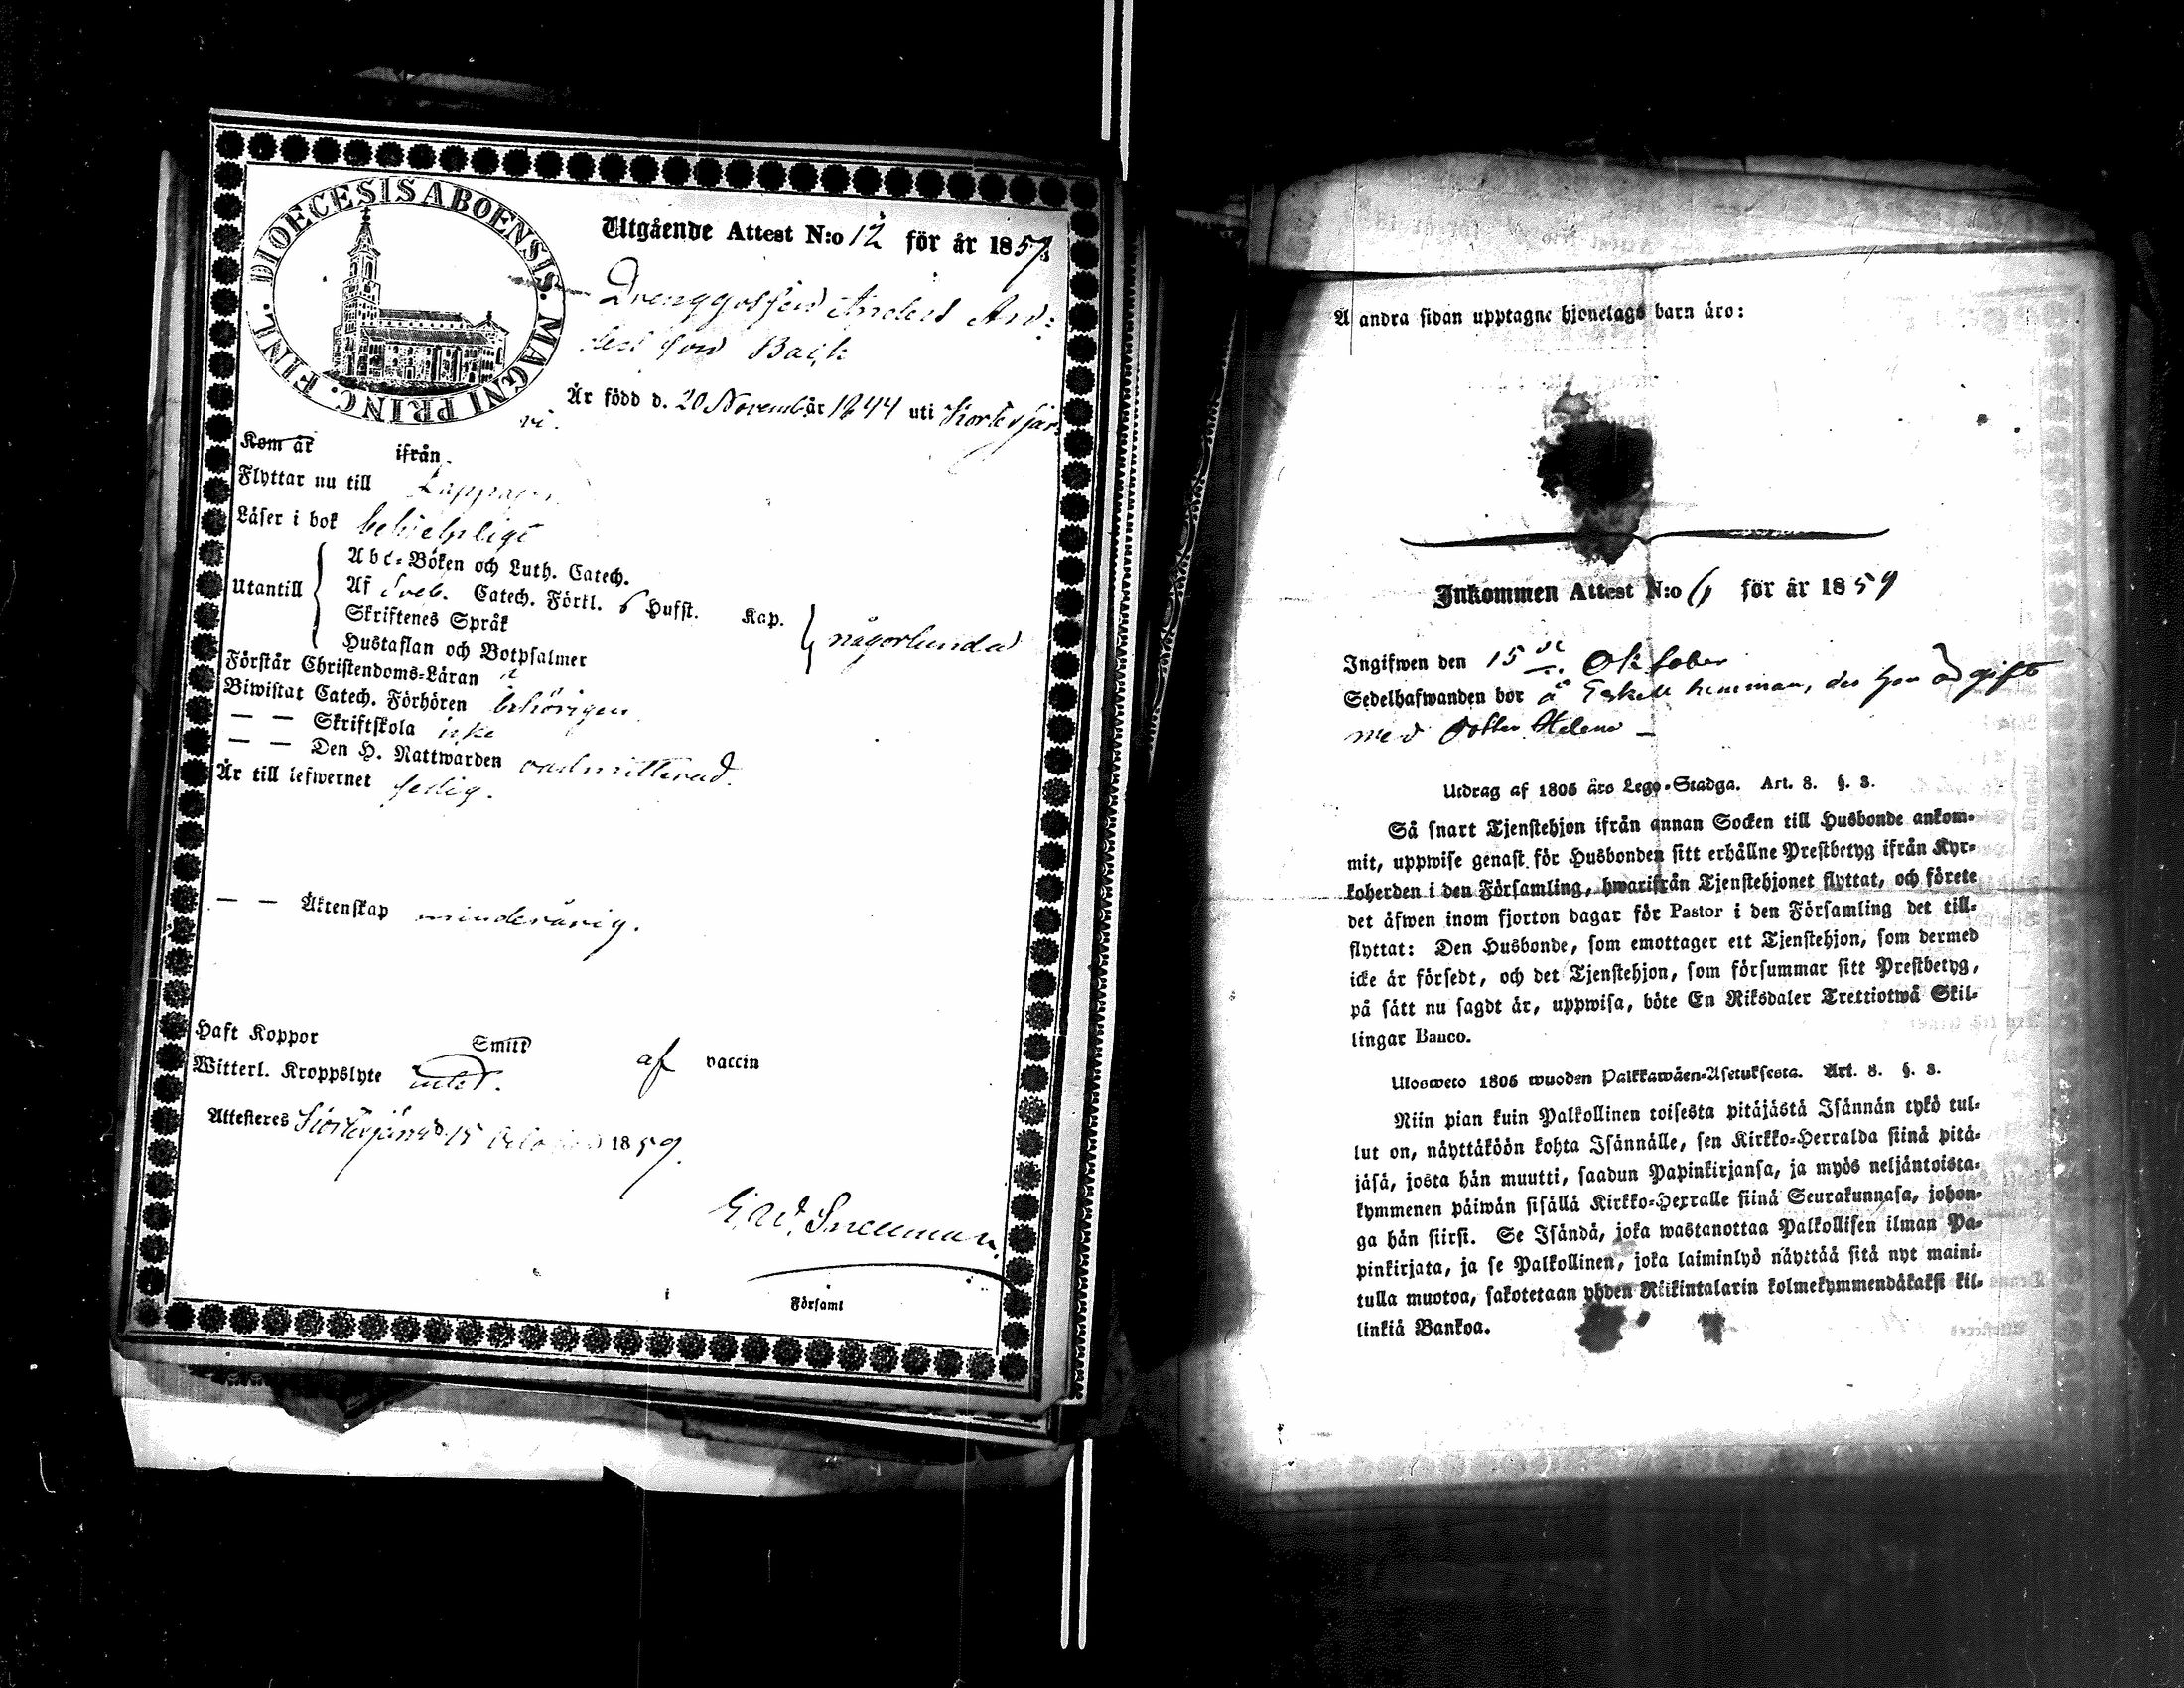 DIOECESIS ABOENSIS. MAGNI PRINC. FINL.
Utgående Attest N:o 12 för år 1859.
Drenggossen Anders An=
ders son Back
Är född d. 20 November år 1844 uti Kortesjär=
vi.
Kom år ifrån
Flyttar nu till Lappajer
Läser i bok behjelpligt
Utantill
Abc-Boken och Luth. Catech.
Af Sveb. Catech. Förkl. 6 Hufst. Kap.
Skriftenes Språk
Hustaflan och Botpsalmer
någorlunda
Förstår Christendoms-Läran
Biwistat Catech. Förhören behörigen
— — Skriftskola icke
— — Den H. Nattwarden oadmitterad.
Är till lefwernet fredig.
— — Äktenskap minderårig.
Haft Koppor Smitt af vaccin
Witterl. Kroppslyte intet.
Attesteras Kortesjärvi d. 15 October 1859.
E. W. Snellman.
i Församl
Å andra sidan upptagne hjonelags barn äro:
Inkommen Attest N:o 6 för år 1859
Ingifwen den 15de Oktober
Sedelhafwanden bor å Eskell hemman, der han är gift
med dotter Helena —
Utdrag af 1805 års Lego-Stadga. Art. 8. §. 3.
Så snart Tjenstehjon ifrån annan Socken till Husbonde ankom-
mit, uppwise genast för Husbonden sitt erhållne Prestbetyg ifrån Kyr-
koherden i den Församling, hwarifrån Tjenstehjonet flyttat, och förete
det äfwen inom fjorton dagar för Pastor i den Församling det till-
flyttat: Den Husbonde, som emottager ett Tjenstehjon, som dermed
icke är försedt, och det Tjenstehjon, som försummar sitt Prestbetyg,
på sätt nu sagdt är, uppwisa, böte En Riksdaler Trettiotwå Skil-
lingar Banco.
Ulosweto 1805 wuoden Palkkawäen-Asetuksesta. Art. 8. §. 3.
Niin pian kuin Palkollinen toisesta pitäjästä Isännän tykö tul-
lut on, näyttäköön kohta Isännälle, sen Kirkko-Herralda siinä pitä-
jäsä, josta hän muutti, saadun Papinkirjansa, ja myös neljäntoista-
kymmenen päiwän sisällä Kirkko-Herralle siinä Seurakunnasa, johon-
ga hän siirsi. Se Isändä, joka wastanottaa Palkollisen ilman Pa-
pinkirjata, ja se Palkollinen, joka laiminlyö näyttää sitä nyt maini-
tulla muotoa, sakotetaan yhden Riikintalarin kolmekymmendäkaksi kil-
linkiä Bankoa.